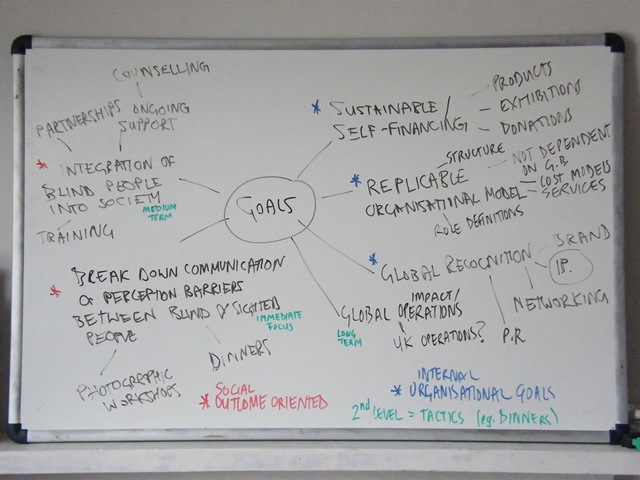 COUNSELLING
PARTNERSHIPS ONGOING
SUPPORT
* INTEGRATION OF
BLIND PEOPLE
INTO SOCIETY
MEDIUM
TERM
TRAINING
* BREAK DOWN COMMUNICATION
OF PERCEPTION BARRIERS
BETWEEN BLIND & SIGHTED
PEOPLE
IMMEDIATE
FOCUS
DINNERS
PHOTOGRAPHIC
WORKSHOPS
* SOCIAL
OUTCOME ORIENTED
GOALS
* SUSTAINABLE/
SELF-FINANCING
PRODUCTS
EXHIBITIONS
DONATIONS
* REPLICABLE
ORGANISATIONAL MODEL
STRUCTURE
NOT DEPENDENT
ON G.B
COST MODELS
SERVICES
ROLE DEFINITIONS
* GLOBAL RECOGNITION
BRAND
IP.
NETWORKING
P.R
GLOBAL IMPACT/
OPERATIONS
LONG
TERM
UK OPERATIONS?
INTERNAL
* ORGANISATIONAL GOALS
2nd LEVEL = TACTICS (eg. DINNERS)